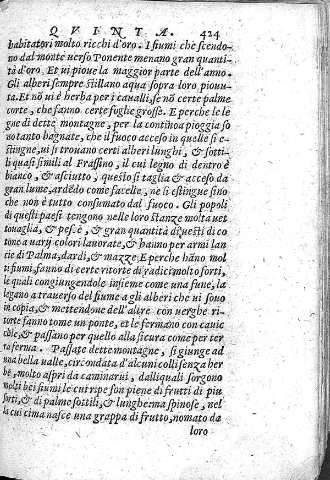 QVINTA. 424
habitatori molto ricchi d'oro. I fiumi chē scendo-
no dal monte uerso Ponente menano gran quanti-
tà d'oro. Et ui pioue la maggior parte dell'anno.
Gli alberi sempre stillano aqua sopra loro piouu-
ta. Et nō ui è herba per i caualli, se nō certe palme
corte, che fanno certe foglie grosse. E perche le le
gne di dette montagne, per la continoa pioggia so
no tanto bagnate, che il fuoco acceso in quelle si e-
stingue, ui si trouano certi alberi lunghi, & sotti-
li quasi simili al Frassino, il cui legno di dentro è
bianco, & asciutto, questo si taglia & acceso da
gran lume, ardēdo come facelle, ne si estingue sino
che non è tutto consumato dal fuoco. Gli popoli
di questi paesi tengono nelle loro stanze molta uet
touaglia, & pesce, & gran quantità di uesti di co
tone a uarij colori lauorate, & hanno per armi lan
cie di Palma, dardi, & mazze. E perche hāno mol
ti fiumi, fanno di certe ritorte di radici molto forti,
le quali congiungendole insieme come una fune, la
legano a trauerso del fiume a gli alberi che ui sono
in copia, & mettendone dell'altre con uerghe ri-
torte fanno tome un ponte, et le fermano con cauic
chie, & passano per quello alla sicura come per ter
ra ferma. Passate dette montagne, si giunge ad
una bella ualle, circondata d'alcuni colli senza her
be, molto aspri da caminarui, dalliquali sorgono
molti bei fiumi le cui ripe son piene di frutti di piu
sorti, & di palme sottili, & lunghe ma spinose, nel
la cui cima nasce una grappa di frutto, nomato da
loro